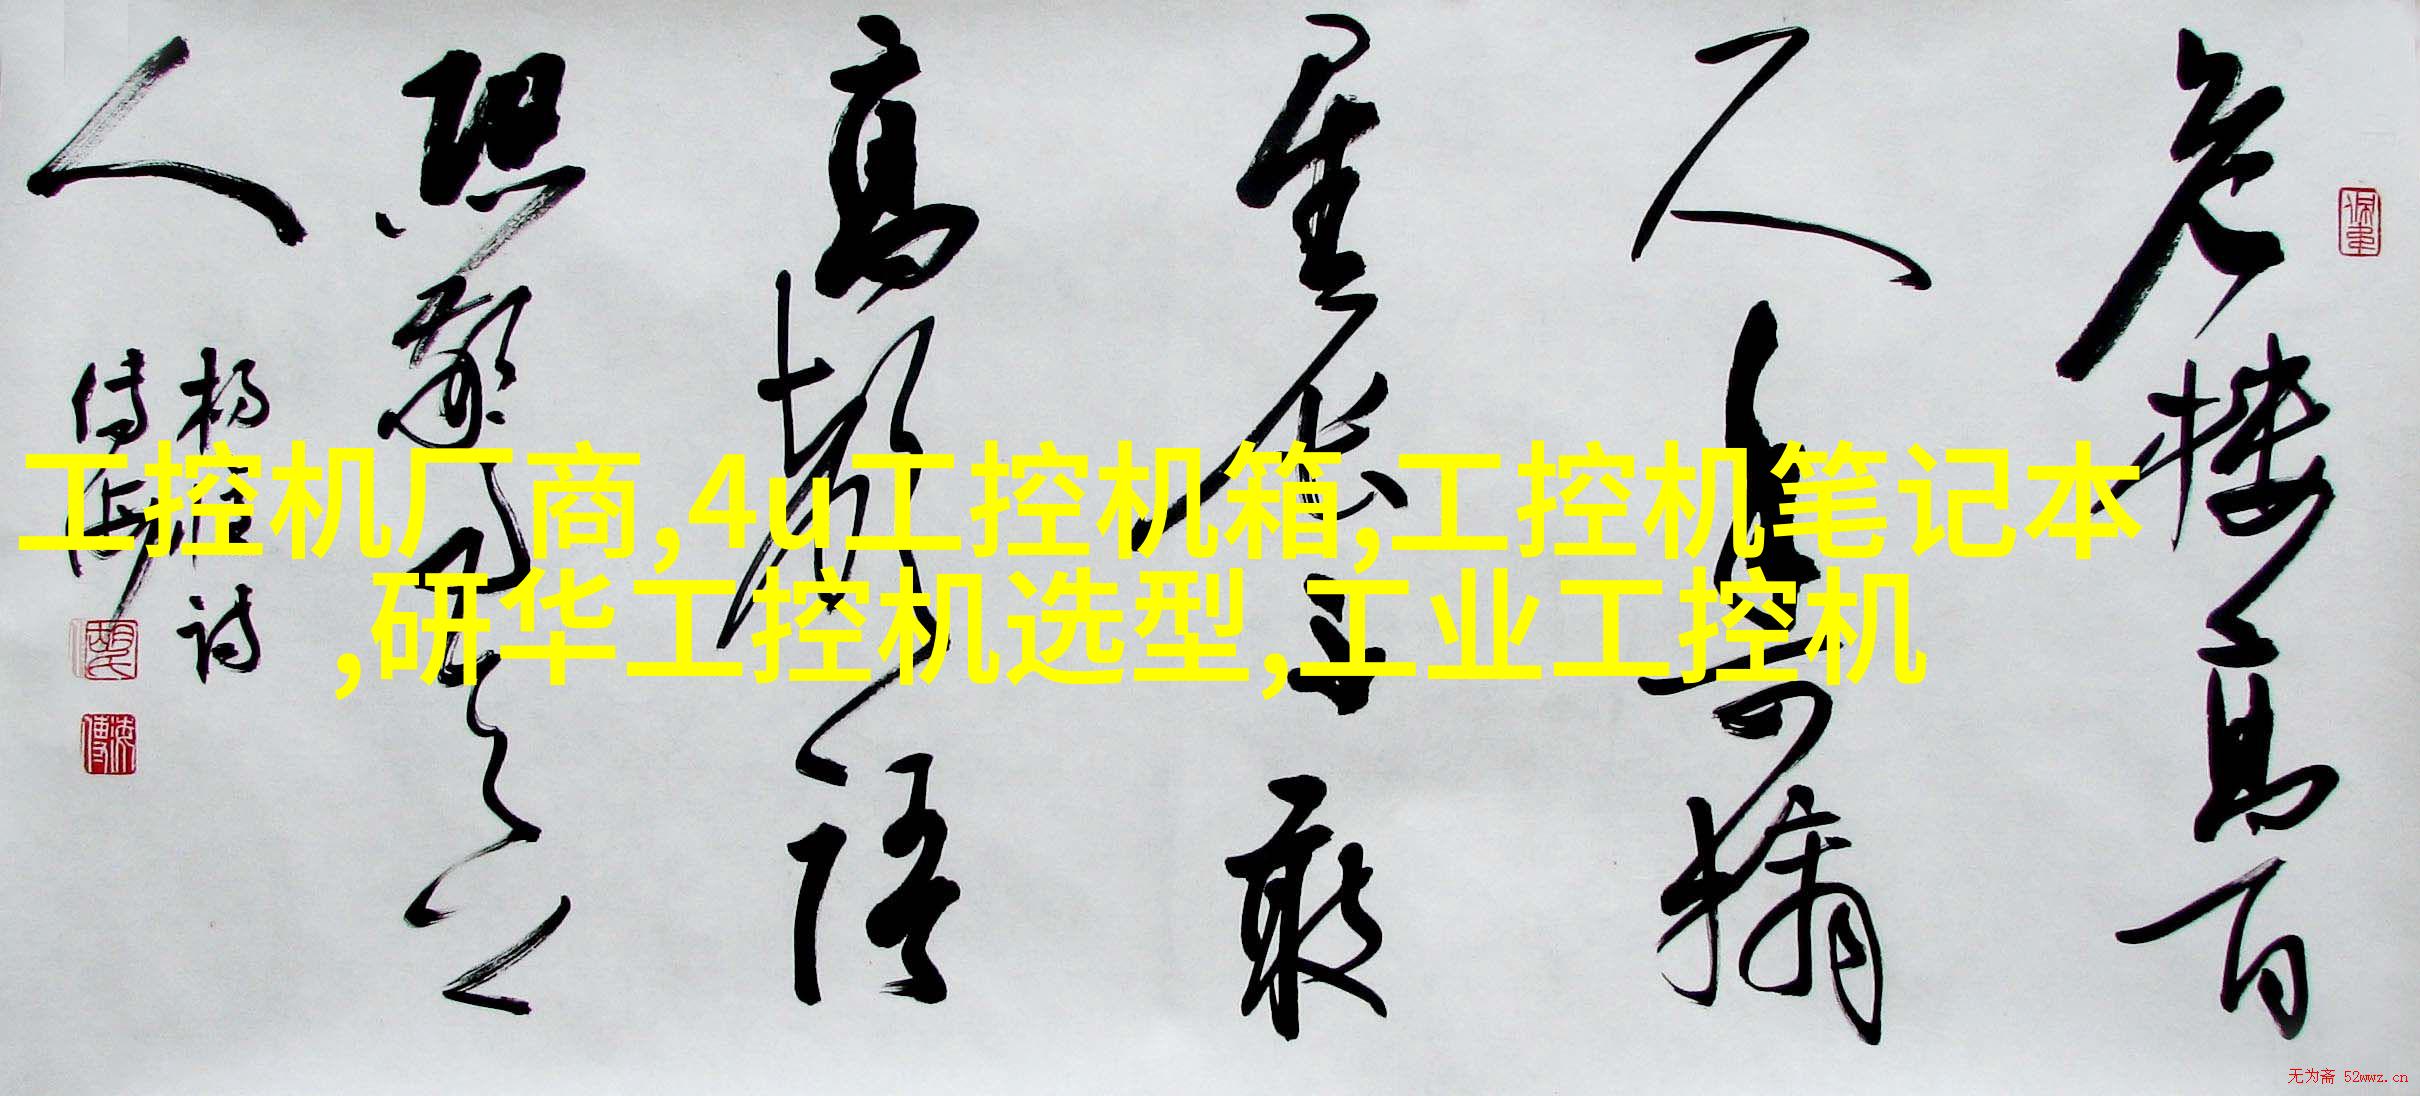 危楼高百
尺手可摘
星辰不敢
高声语
恐惊天上
人
杨亿诗
工控机厂商,4u工控机箱,工控机笔记本
,研华工控机选型,工业工控机
无为斋 52wwz.cn